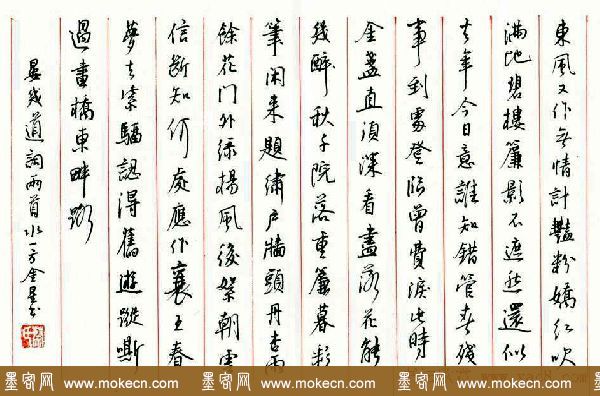 東風又作無情計豔粉嬌紅吹
滿地碧樓簾影不遮愁還似
去年今日意誰知錯管春殘
事到處登臨曾費淚此時
金盞直須深看盡落花能
幾醉秋千院落重簾暮彩
筆闲来題繡户牆頭丹杏雨
餘花門外綠楊風後絮朝雲
信斷知何處應作襄王春
夢去紫騮認得舊遊蹤嘶
過畫橋東畔路
晏幾道詞兩首水一方
墨客网 www.mokecn.com 墨客网 www.mokecn.com 墨客网 www.mokecn.com